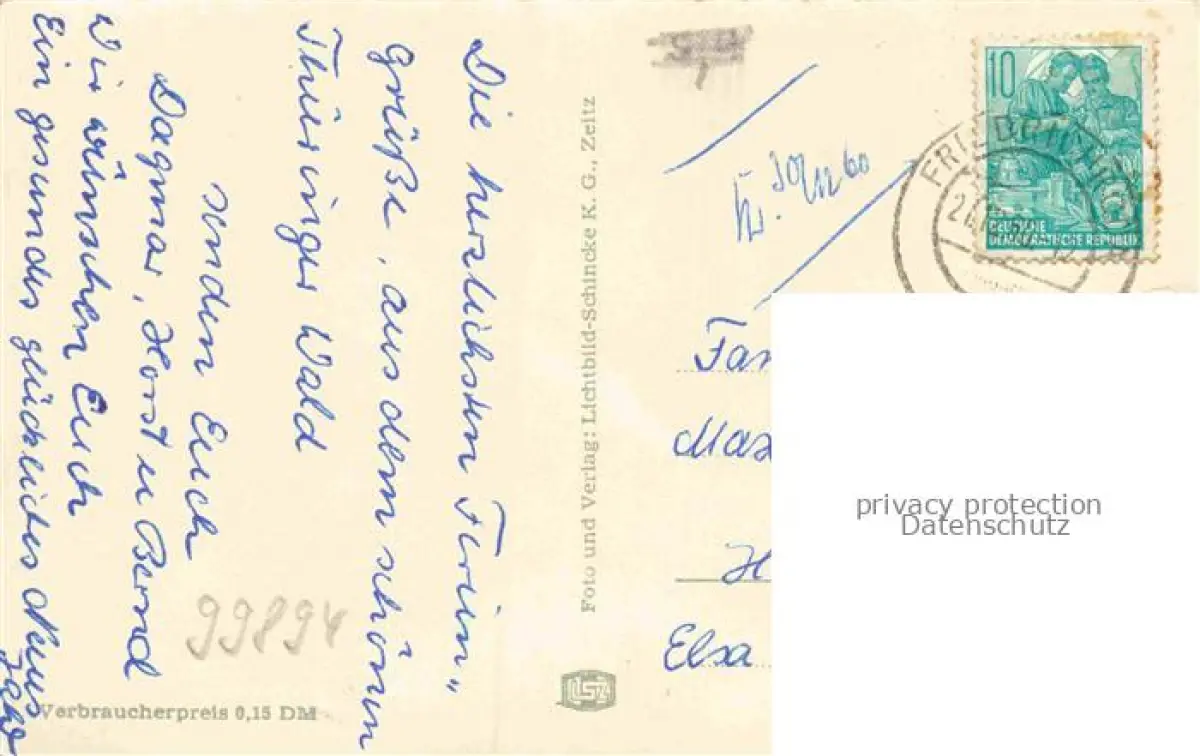 Die herzlichsten Ferien"
grüße, aus dem schönen
Thüringer Wald
senden Euch
Dagmar, Horst u Bernd
Wir wünschen Euch
Ein gesundes glückliches Neues
Jahr
99894
Verbraucherpreis 0,15 DM
Foto und Verlag: Lichtbild-Schincke K. G., Zeitz
30/12 60
10
DEUTSCHE
DEMOKRATISCHE REPUBLIK
Fam
Max
H
Elsa
privacy protection
Datenschutz